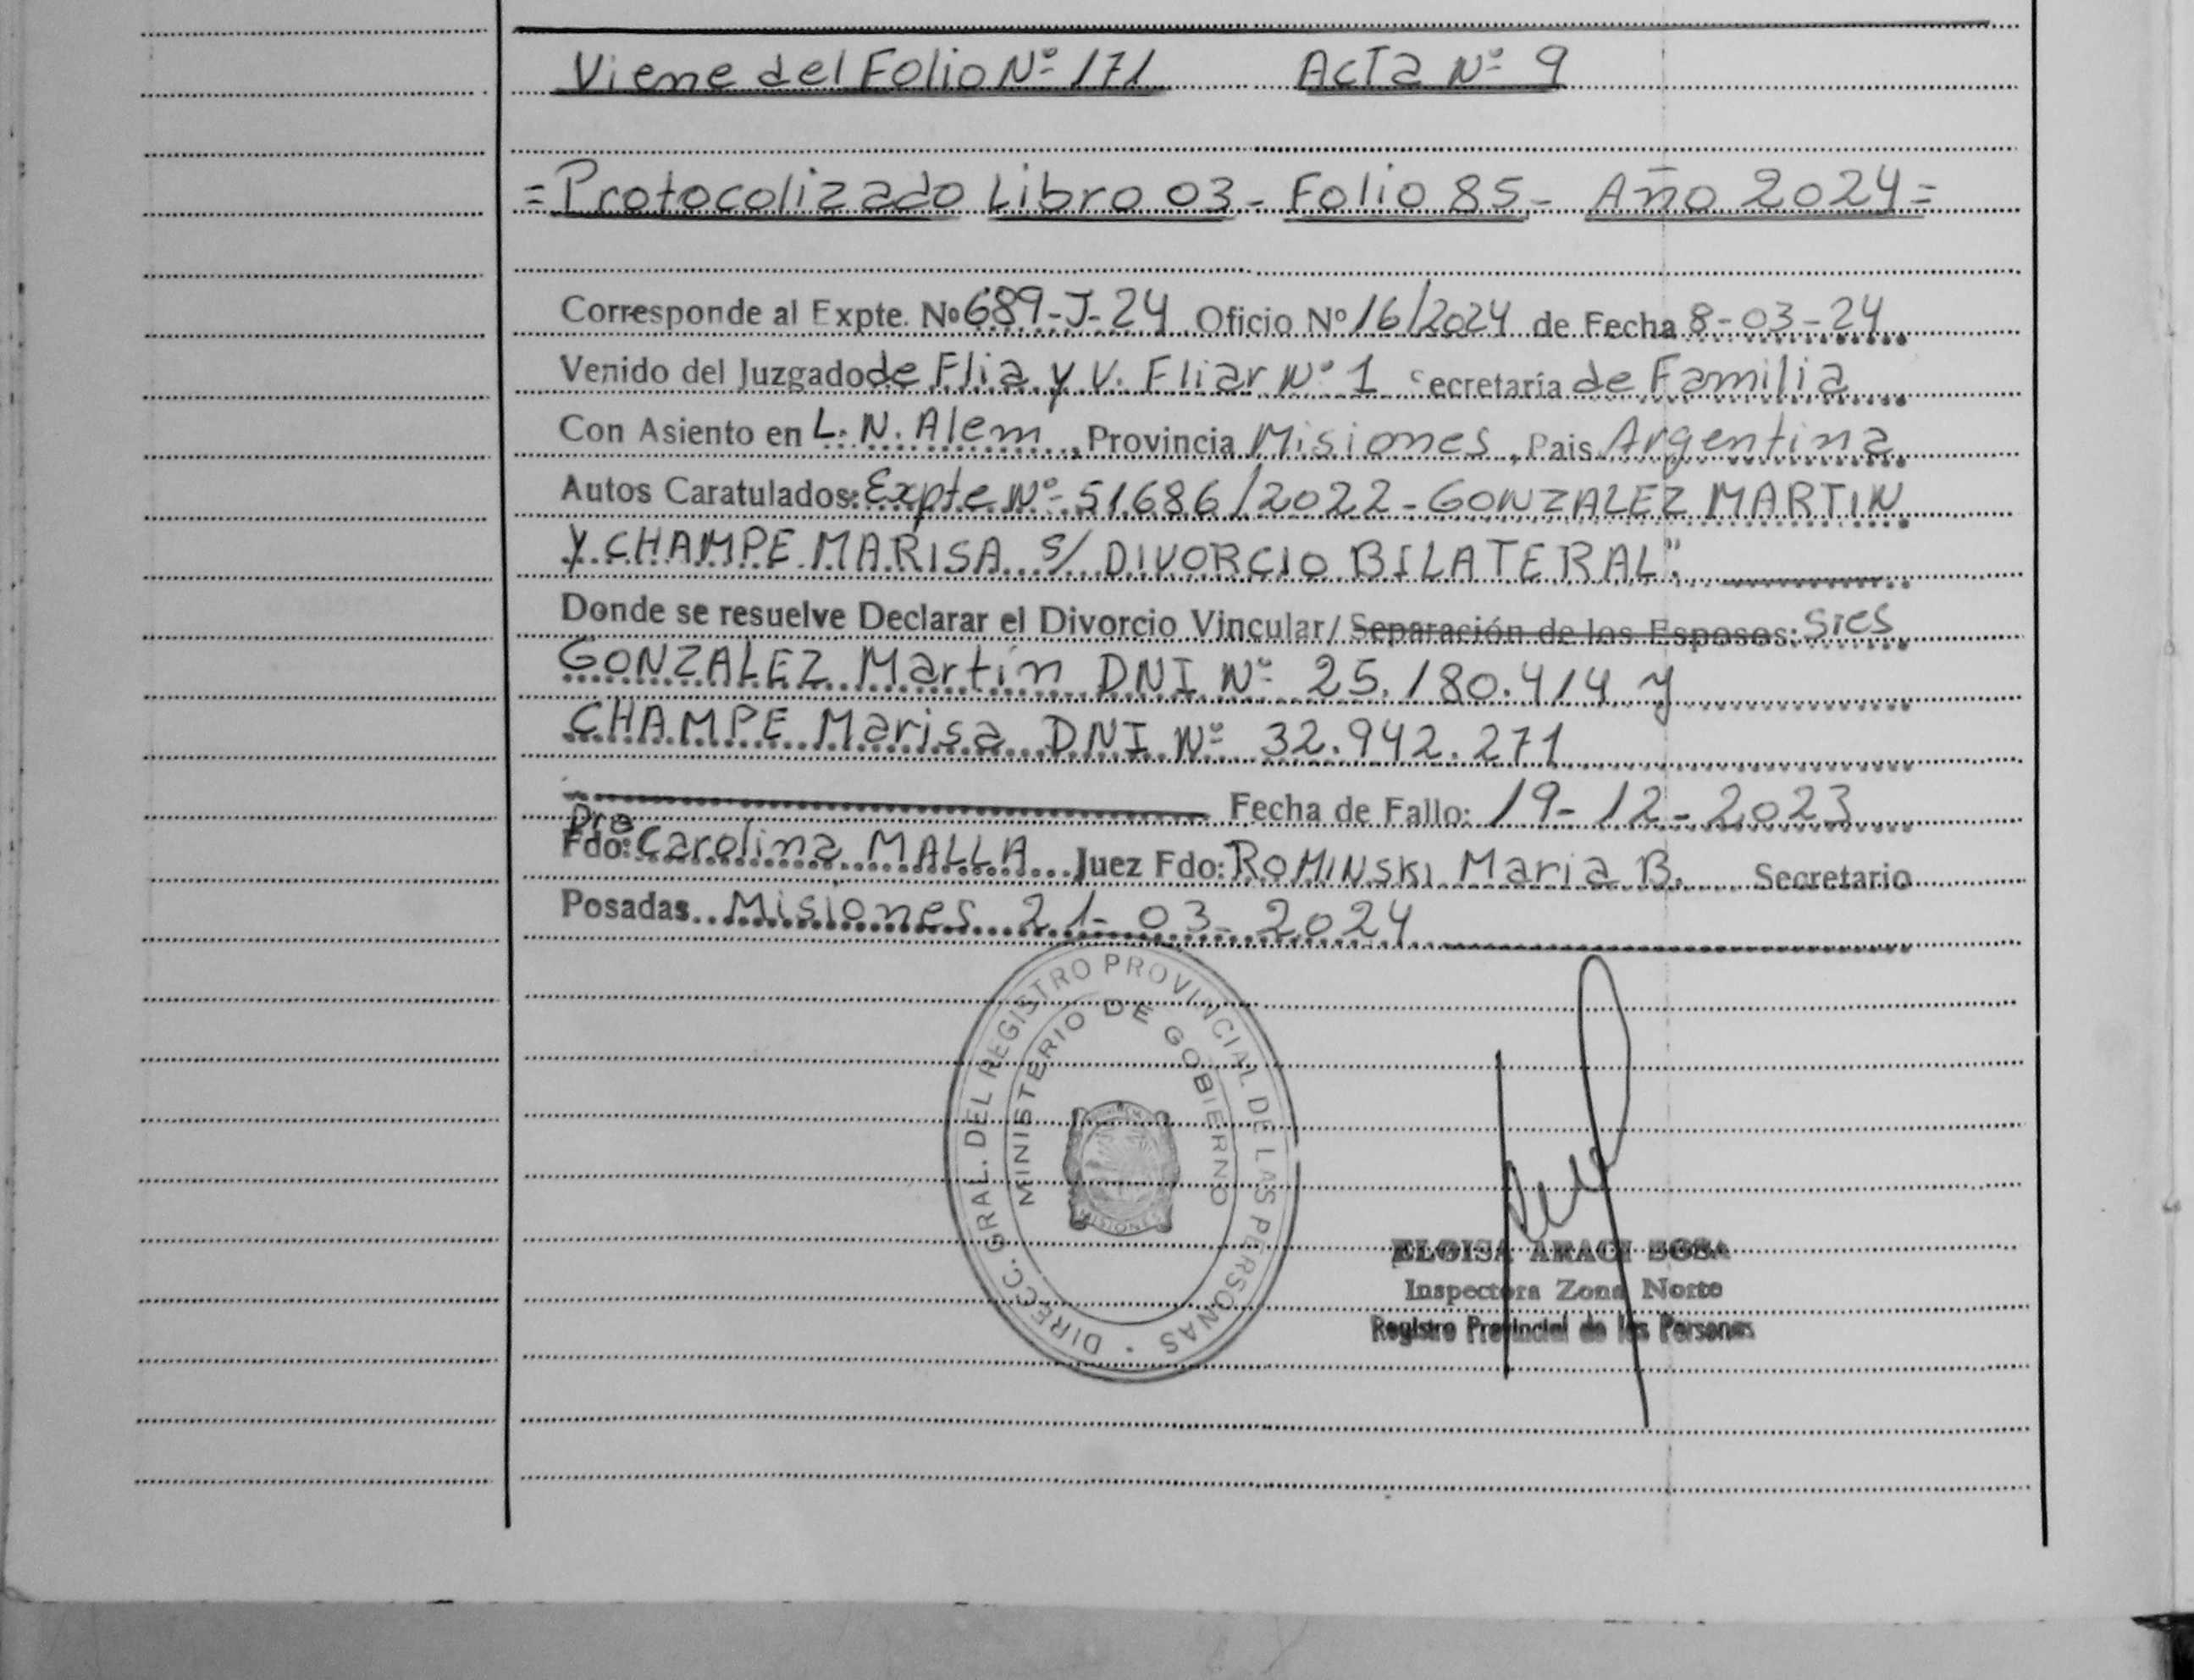 Viene del Folio Nº 171 Acta Nº 9
=Protocolizado Libro 03- Folio 85- Año 2024=
Corresponde al Expte. Nº 689-J-24 Oficio Nº 16/2024 de Fecha 8-03-24
Venido del Juzgado de Flia y V. Fliar Nº 1 Secretaría de Familia
Con Asiento en L. N. Alem, Provincia Misiones, Pais Argentina
Autos Caratulados: Expte Nº 51686/2022 - GONZALEZ MARTIN
Y CHAMPE MARISA s/ DIVORCIO BILATERAL".
Donde se resuelve Declarar el Divorcio Vincular/ Separación de los Esposos: Sres
GONZALEZ Martín DNI Nº 25.180.414 y
CHAMPE Marisa DNI Nº 32.942.271
Fecha de Fallo: 19-12-2023
Dra
Fdo: Carolina MALLA Juez Fdo: ROMINSKI Maria B. Secretario
Posadas Misiones 21-03-2024
DIRECC. GRAL. DEL REGISTRO PROVINCIAL DE LAS PERSONAS
MINISTERIO DE GOBIERNO
MISIONES
ELOISA ARACI SOSA
Inspectora Zona Norte
Registro Provincial de las Personas